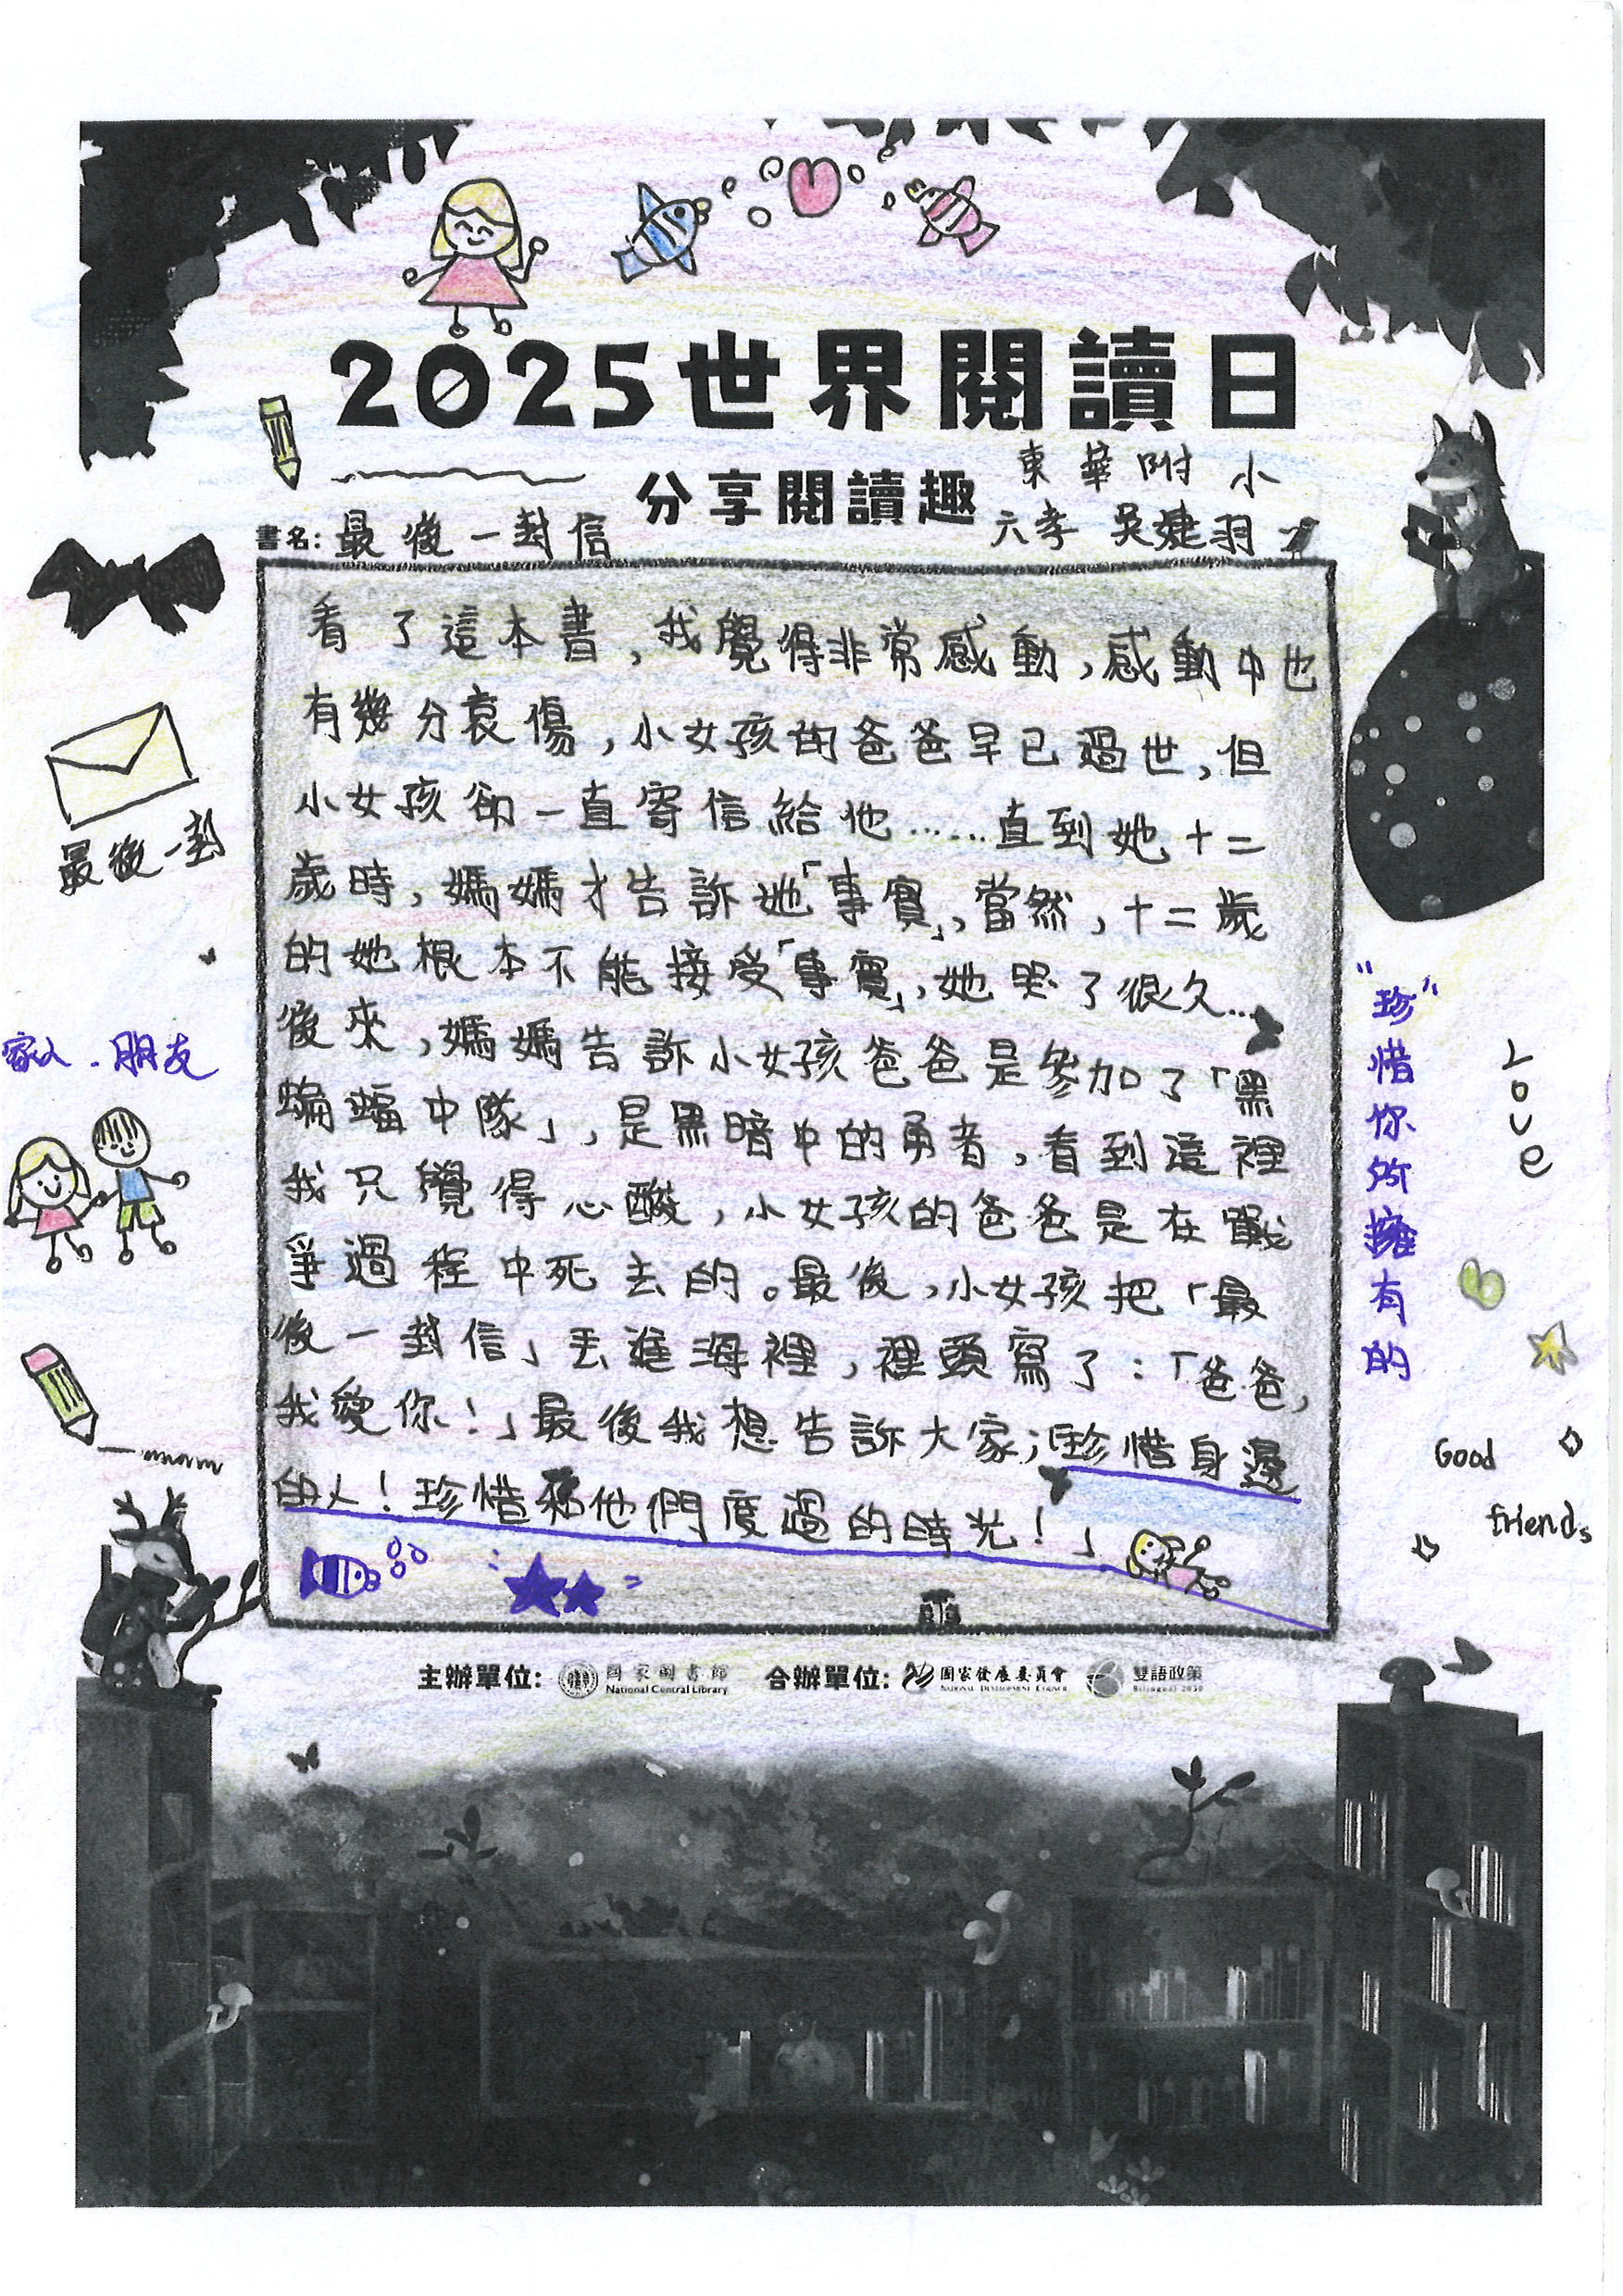 2025世界閱讀日
分享閱讀趣
東華附小
書名：最後一封信
六孝 吳婕羽
看了這本書，我覺得非常感動，感動中也
有幾分哀傷，小女孩的爸爸早已過世，但
小女孩卻一直寄信給他……直到她十二
歲時，媽媽才告訴她「事實」，當然，十二歲
的她根本不能接受「事實」，她哭了很久…
後來，媽媽告訴小女孩爸爸是參加了「黑
蝙蝠中隊」，是黑暗中的勇者，看到這裡
我只覺得心酸，小女孩的爸爸是在戰
爭過程中死去的。最後，小女孩把「最
後一封信」丟進海裡，裡頭寫了：「爸爸，
我愛你！」最後我想告訴大家；「珍惜身邊
的人！珍惜和他們度過的時光！」
最後一封
家人．朋友
"珍"惜你所擁有的
Love
Good
friends
主辦單位：國家圖書館 National Central Library 合辦單位：國家發展委員會 NATIONAL DEVELOPMENT COUNCIL 雙語政策 Bilingual 2030